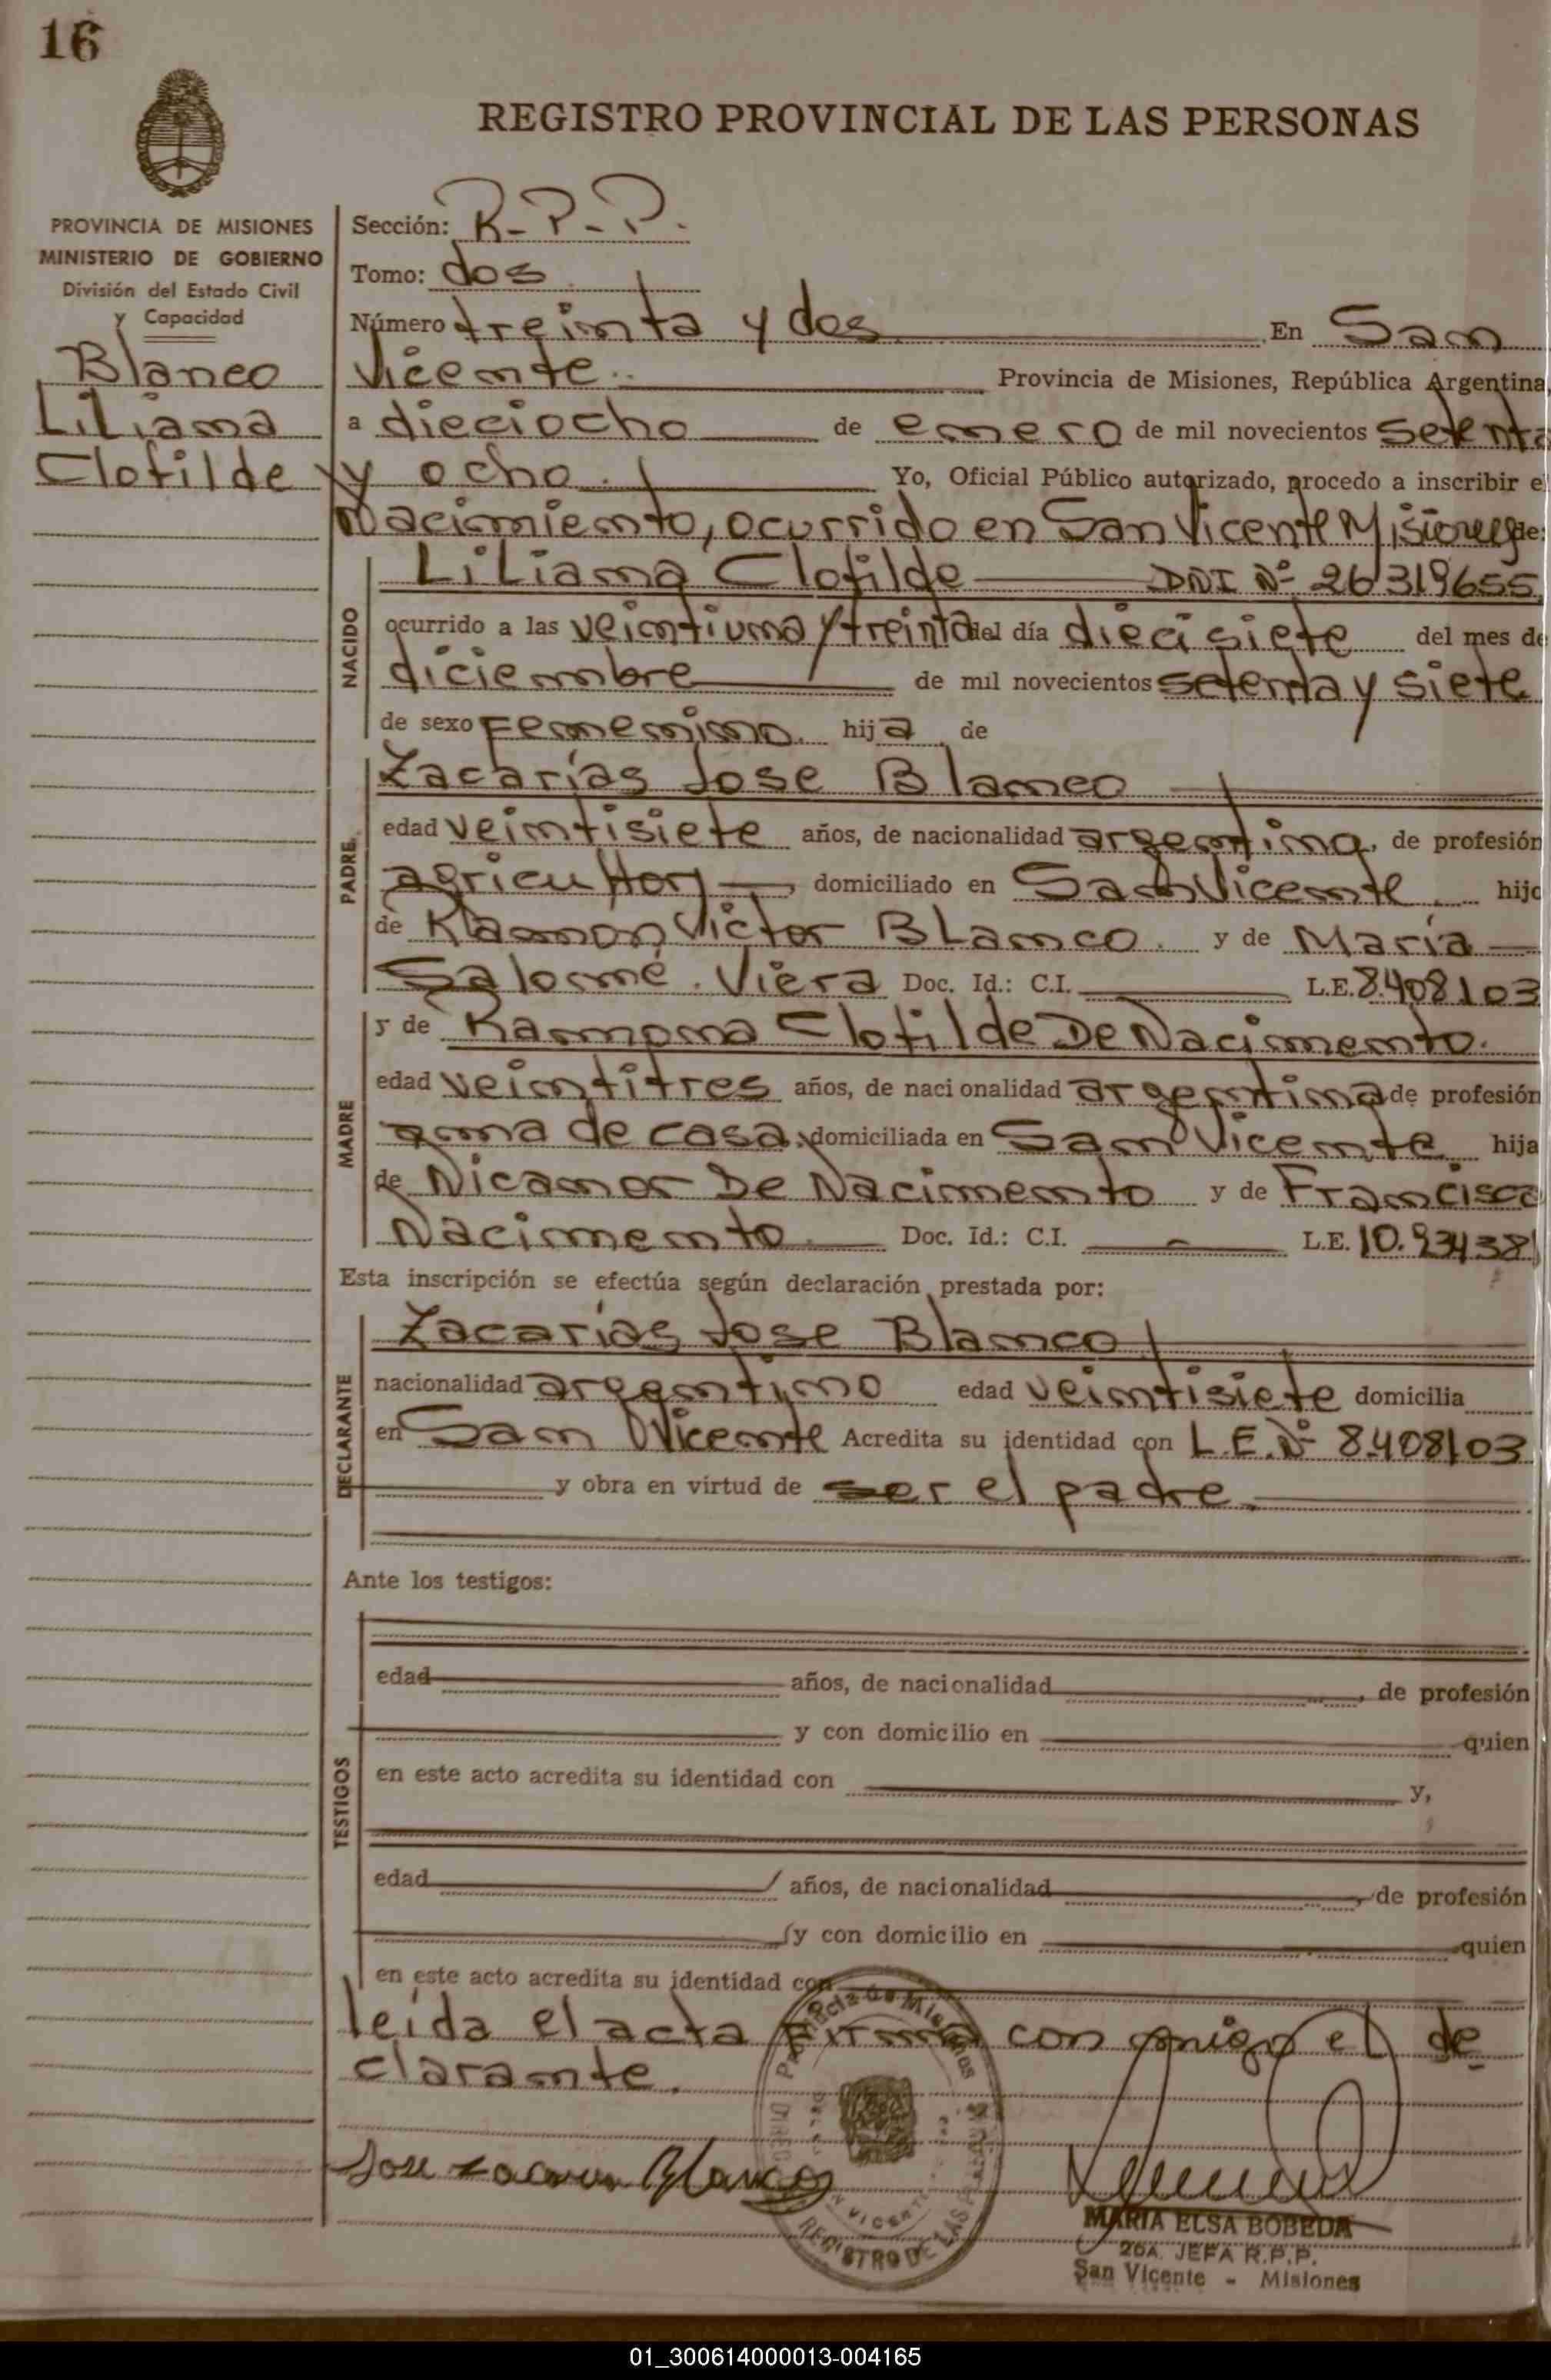 16
REGISTRO PROVINCIAL DE LAS PERSONAS
PROVINCIA DE MISIONES
MINISTERIO DE GOBIERNO
División del Estado Civil
y Capacidad
Blanco
Liliana
Clotilde
Sección: R-P-P.
Tomo: dos
Número treinta y dos En San
Vicente Provincia de Misiones, República Argentina,
a dieciocho de enero de mil novecientos setenta
y ocho. Yo, Oficial Público autorizado, procedo a inscribir el
Nacimiento, ocurrido en San Vicente Misiones de:
NACIDO
Liliana Clotilde DNI Nº 26319655
ocurrido a las veintiuna y treinta del día diecisiete del mes de
diciembre de mil novecientos setenta y siete
de sexo femenino. hija de
PADRE
Zacarías Jose Blanco
edad veintisiete años, de nacionalidad argentina, de profesión
agricultor, domiciliado en San Vicente hijo
de Ramon Victor Blanco. y de María
Salomé Viera Doc. Id.: C.I. L.E. 8.408103
MADRE
y de Ramona Clotilde De Nacimento.
edad veintitres años, de nacionalidad argentina de profesión
ama de casa, domiciliada en San Vicente hija
de Nicanor De Nacimento y de Francisca
Nacimento Doc. Id.: C.I. L.E. 10.934381
Esta inscripción se efectúa según declaración prestada por:
DECLARANTE
Zacarías Jose Blanco
nacionalidad argentino edad veintisiete domicilia
en San Vicente Acredita su identidad con L.E. Nº 8.408103
y obra en virtud de ser el padre.
Ante los testigos:
TESTIGOS
edad años, de nacionalidad, de profesión
y con domicilio en quien
en este acto acredita su identidad con y,
edad años, de nacionalidad, de profesión
y con domicilio en quien
en este acto acredita su identidad con
leída el acta firma con migo el de
clarante.
Provincia de Misiones
REGISTRO DE LAS
Jose Zacarias Blanco
MARIA ELSA BOBEDA
2DA. JEFA R.P.P.
San Vicente - Misiones
01_300614000013-004165